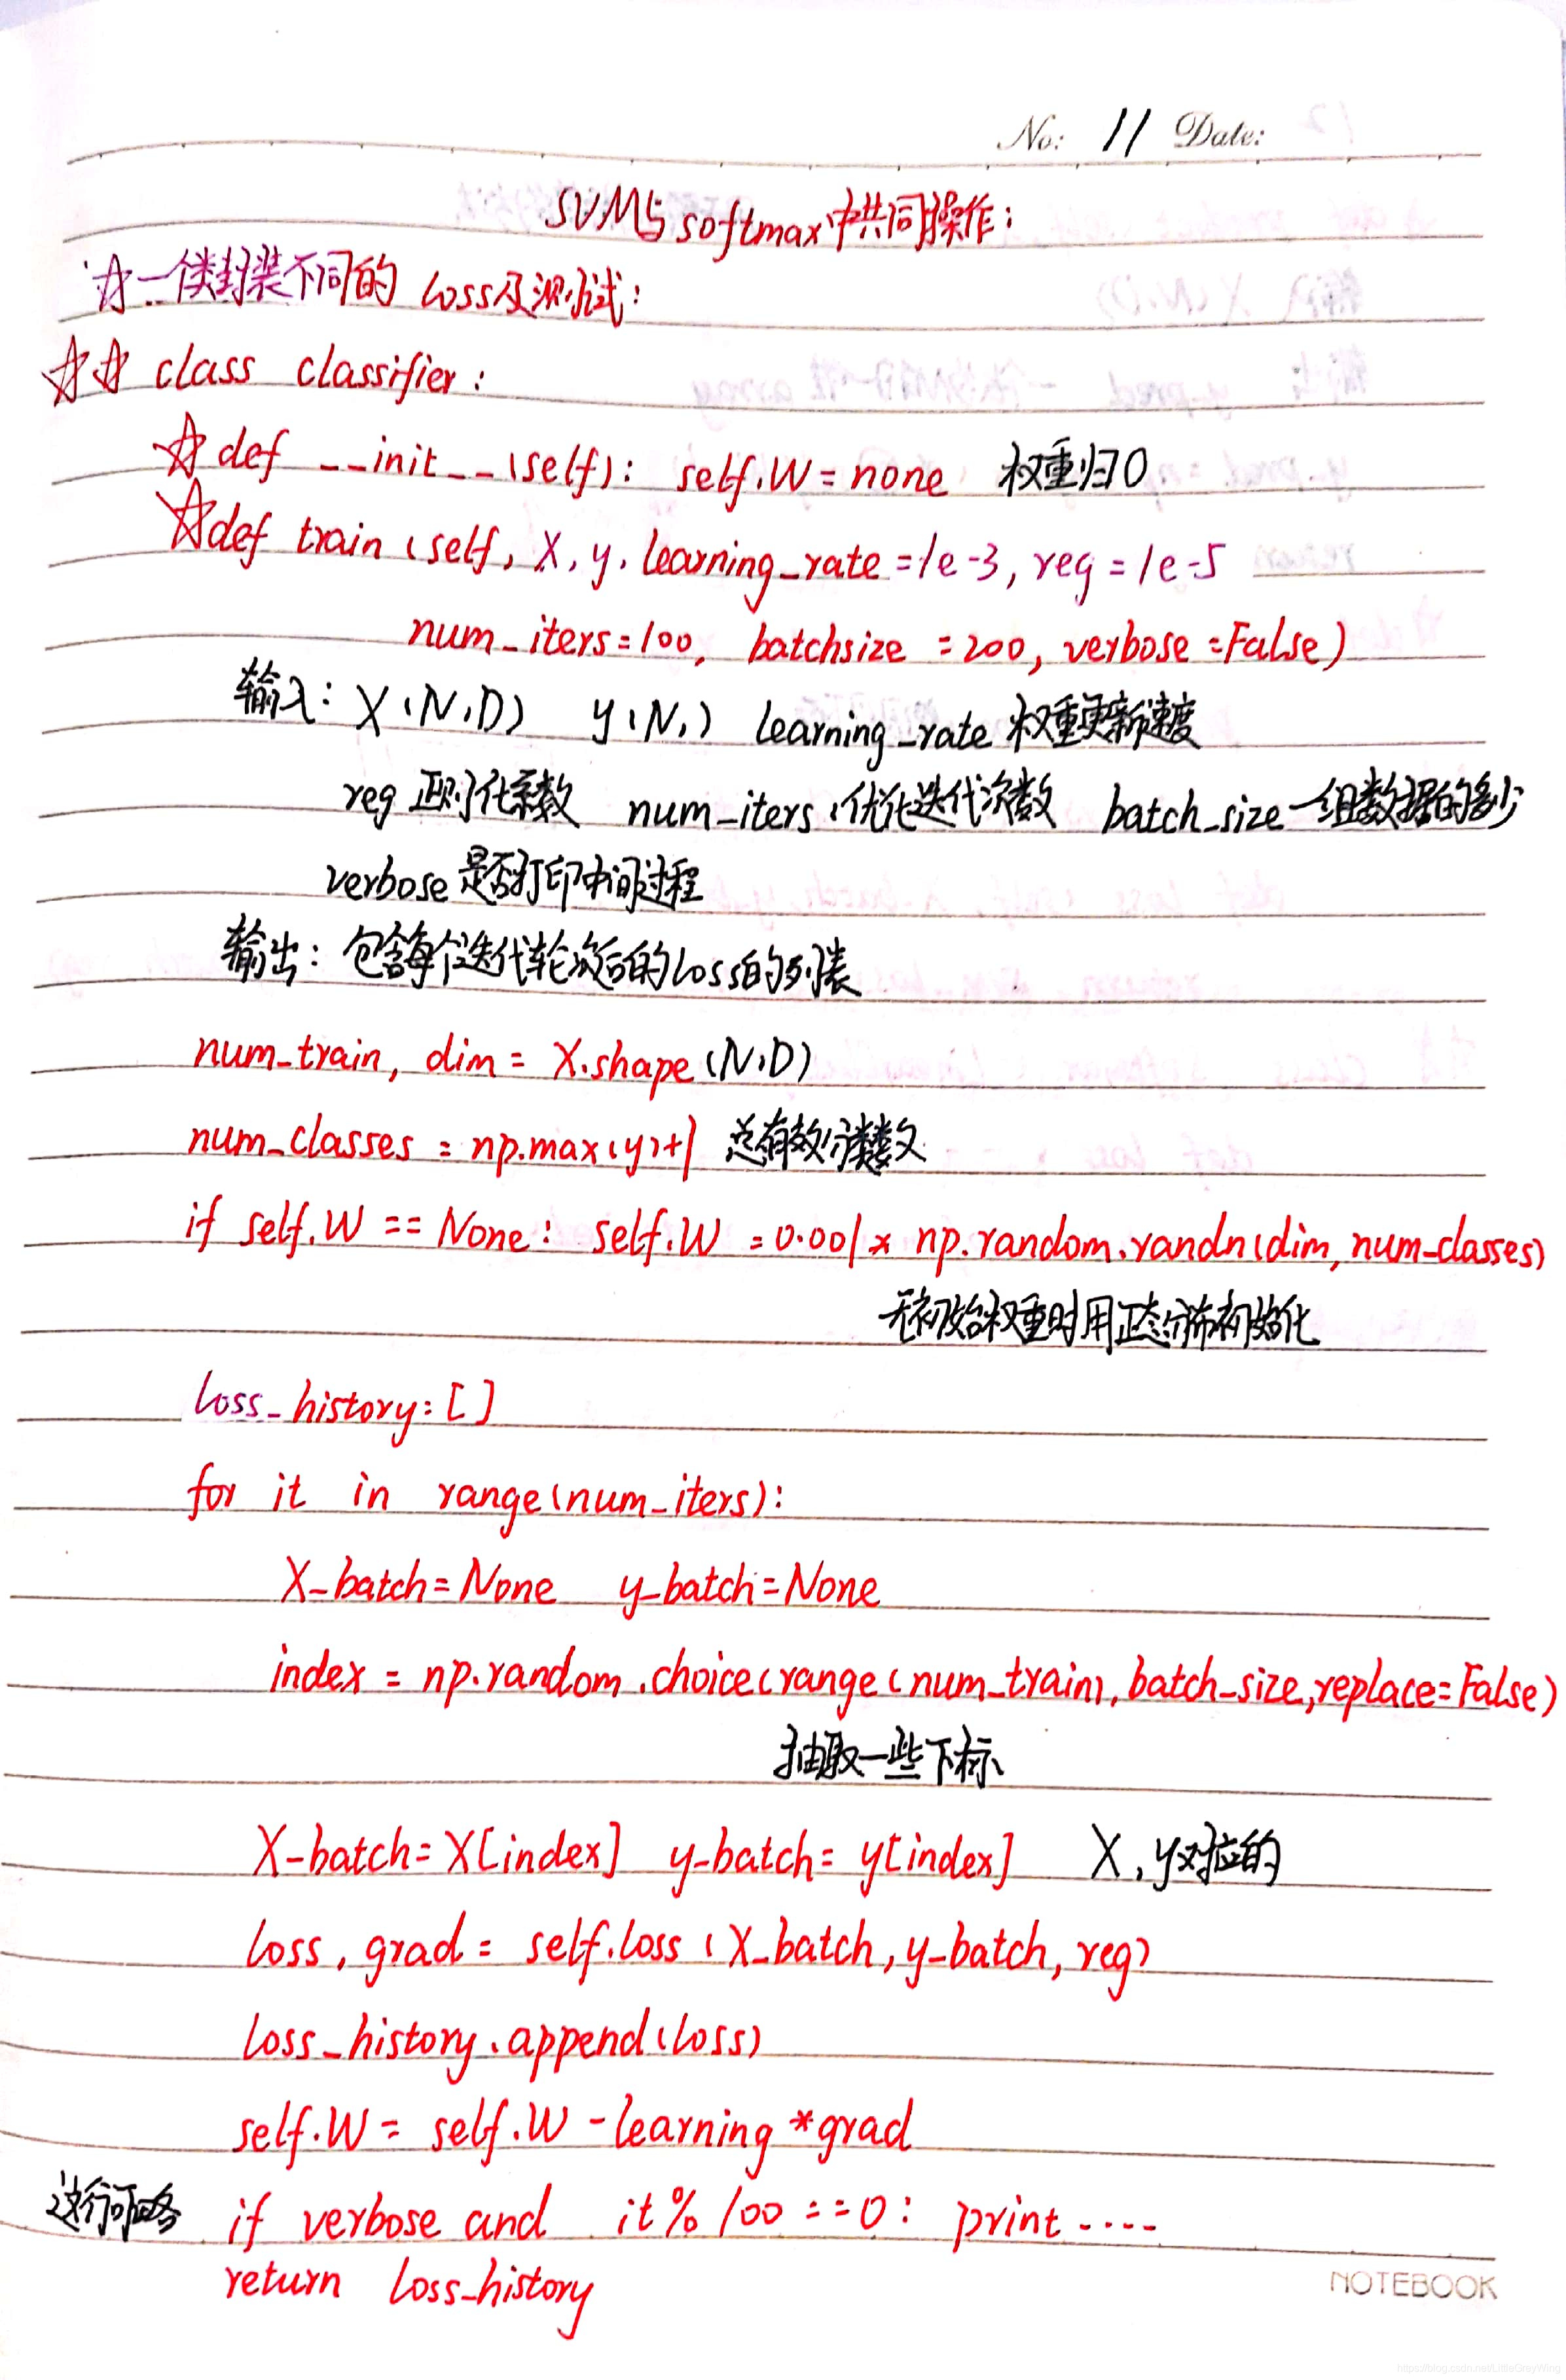 No: 11 Date:
SVM与softmax中共同操作:
☆一个类封装不同的 loss及测试:
☆☆ class classifier:
☆ def __init__(self): self.W = none 权重归0
☆def train (self, X, y, learning_rate = 1e-3, reg = 1e-5
num_iters=100, batchsize = 200, verbose = False)
输入: X (N,D) y (N,) learning_rate 权重更新速度
reg 正则化系数 num_iters 优化迭代次数 batch_size 一组数据的多少
verbose 是否打印中间过程
输出: 包含每个迭代轮次后的loss的列表
num_train, dim = X.shape (N,D)
num_classes = np.max(y)+1 总有效分类数
if self.W == None: self.W = 0.001 * np.random.randn(dim, num_classes)
无初始权重时用正态分布初始化
loss_history: []
for it in range(num_iters):
X_batch=None y_batch=None
index = np.random.choice(range(num_train), batch_size, replace=False)
抽取一些下标
X_batch= X[index] y_batch= y[index] X, y对应的
loss, grad = self.loss (X_batch, y_batch, reg)
loss_history.append(loss)
self.W = self.W - learning *grad
这行可略 if verbose and it % 100 == 0: print ····
return loss_history
NOTEBOOK
https://blog.csdn.net/LittleGreyWing